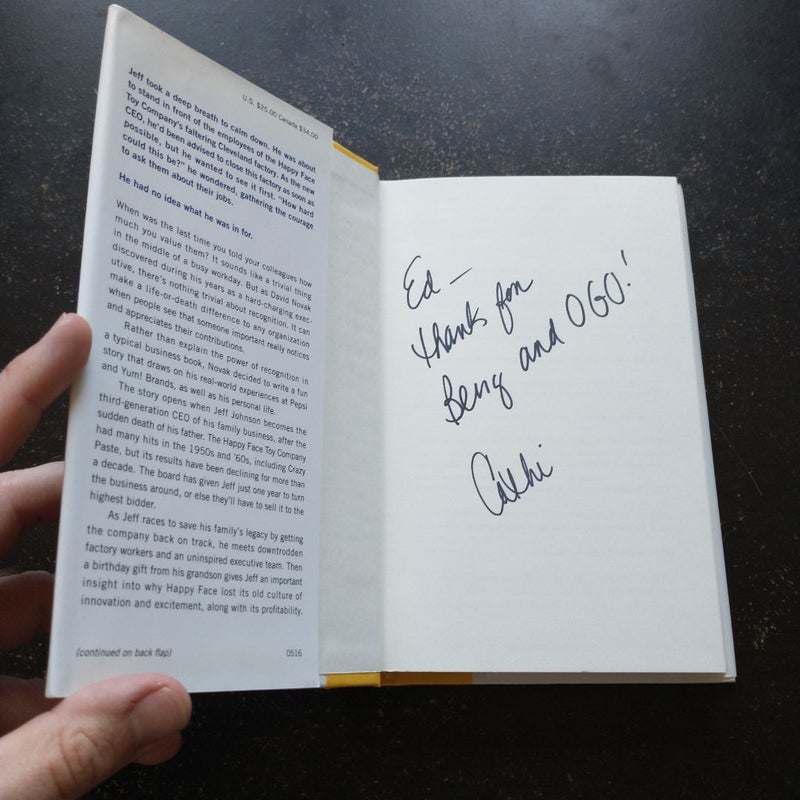 U.S. $25.00 Canada $34.00
Jeff took a deep breath to calm down. He was about
to stand in front of the employees of the Happy Face
Toy Company's faltering Cleveland factory. As the new
CEO, he'd been advised to close this factory as soon as
possible, but he wanted to see it first. "How hard
could this be?" he wondered, gathering the courage
to ask them about their jobs.
He had no idea what he was in for.
When was the last time you told your colleagues how
much you value them? It sounds like a trivial thing
in the middle of a busy workday. But as David Novak
discovered during his years as a hard-charging exec-
utive, there's nothing trivial about recognition. It can
make a life-or-death difference to any organization
when people see that someone important really notices
and appreciates their contributions.
Rather than explain the power of recognition in
a typical business book, Novak decided to write a fun
story that draws on his real-world experiences at Pepsi
and Yum! Brands, as well as his personal life.
The story opens when Jeff Johnson becomes the
third-generation CEO of his family business, after the
sudden death of his father. The Happy Face Toy Company
had many hits in the 1950s and '60s, including Crazy
Paste, but its results have been declining for more than
a decade. The board has given Jeff just one year to turn
the business around, or else they'll have to sell it to the
highest bidder.
As Jeff races to save his family's legacy by getting
the company back on track, he meets downtrodden
factory workers and an uninspired executive team. Then
a birthday gift from his grandson gives Jeff an important
insight into why Happy Face lost its old culture of
innovation and excitement, along with its profitability.
(continued on back flap)
0516
Ed —
thanks for
Being and OGO!
Cathi